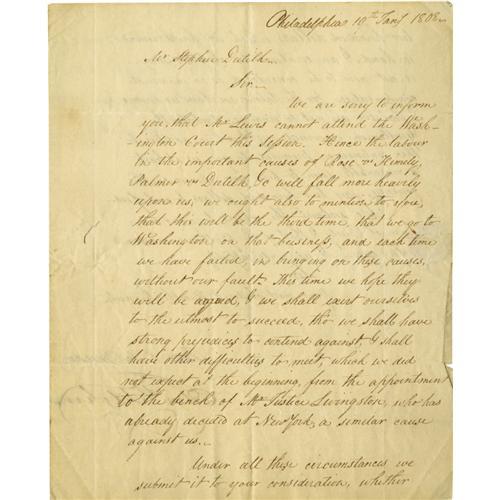 Philadelphia 19th Jany 1808
Mr Stephen Dutilh
Sir
We are sorry to inform
you, that Mr Lewis cannot attend the Wash-
ington Court this session. Hence the labour
in the important causes of Rose v Himely,
Palmer v Dutilh &c will fall more heavily
upon us, we ought also to mention to you,
that this will be the third time, that we go to
Washington on that business, and each time
we have failed, in bringing on these causes,
without our fault. This time we hope they
will be argued, & we shall exert ourselves
to the utmost to succeed, tho' we shall have
strong prejudices to contend against, & shall
have other difficulties to meet, which we did
not expect at the beginning, from the appointment
to the bench of Mr Justice Livingston, who has
already decided at New York, a similar cause
against us.
Under all these circumstances we
submit it to your consideration, whether